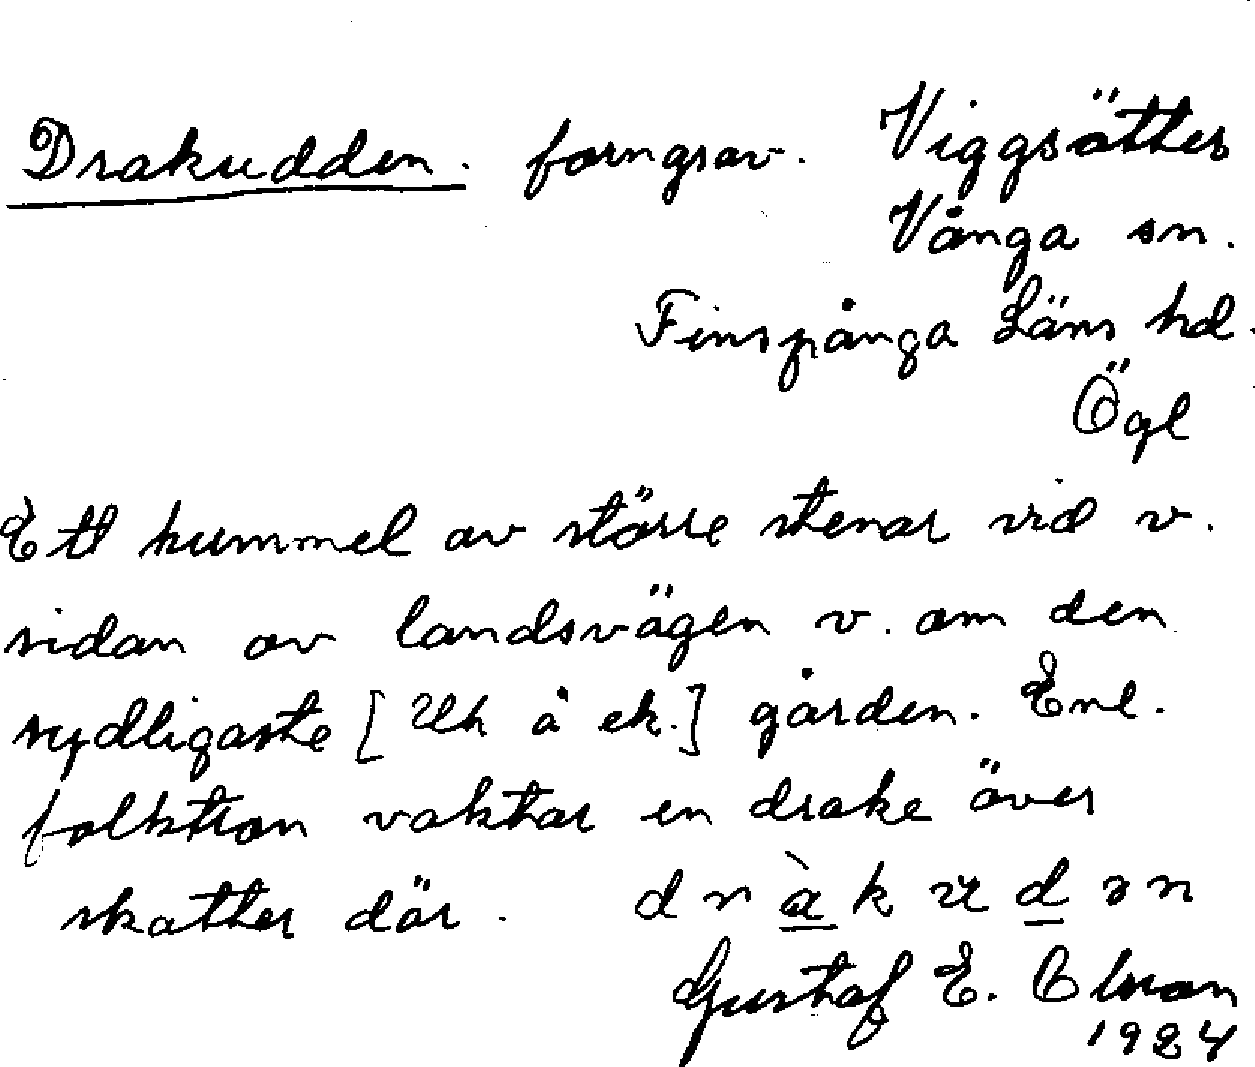 Drakudden. forngrav. Viggsätter
Vånga sn.
Finspånga Läns hd.
Ögl
Ett kummel av större stenar vid v.
sidan av landsvägen v. om den
sydligaste [Uh å ek.] gården. Enl.
folktron vaktar en drake över
skatter där. dràkudən
Gustaf E. Olsson
1924